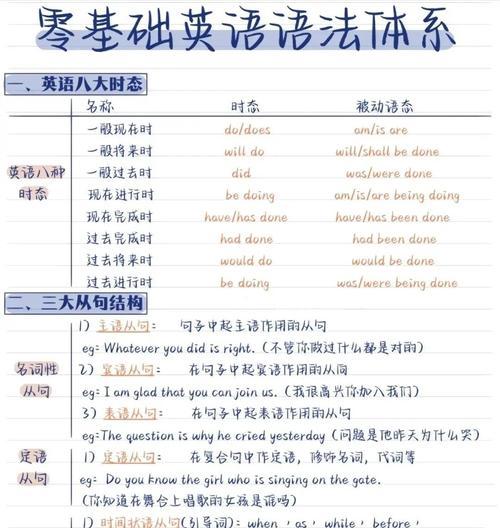 零基础英语语法体系
一、英语八大时态
名称 时态 被动语态
一般现在时 do/does am/is are
一般将来时 will do will/shall be done
一般过去时 did was/were done
英语八种时态
现在进行时 be doing am/is/are being doing
现在完成时 have/has done have/has been done
过去完成时 had done had been done
过去将来时 would do would be done
过去进行时 be doing was/were being done
二、三大从句结构
1) 主语从句: 句子中起主语作用的从句
eg: Whatever you did is right. (不管你做过什么都是对的)
名词性从句
2) 宾语从句: 在句子中起宾语作用的从句
eg: I am glad that you can join us. (我很高兴你加入我们)
3) 表语从句: 在句子中起表语作用的从句
eg:The question is why he cried yesterday (问题是他昨天为什么哭)
定语从句
1) 定语从句: 在复合句中作定语, 修饰名词, 代词等
eg: Do you know the girl who is singing on the gate.
(你知道在舞台上唱歌的女孩是谁吗)
1) 时间状语从句(引导词): when , as , while , before ,